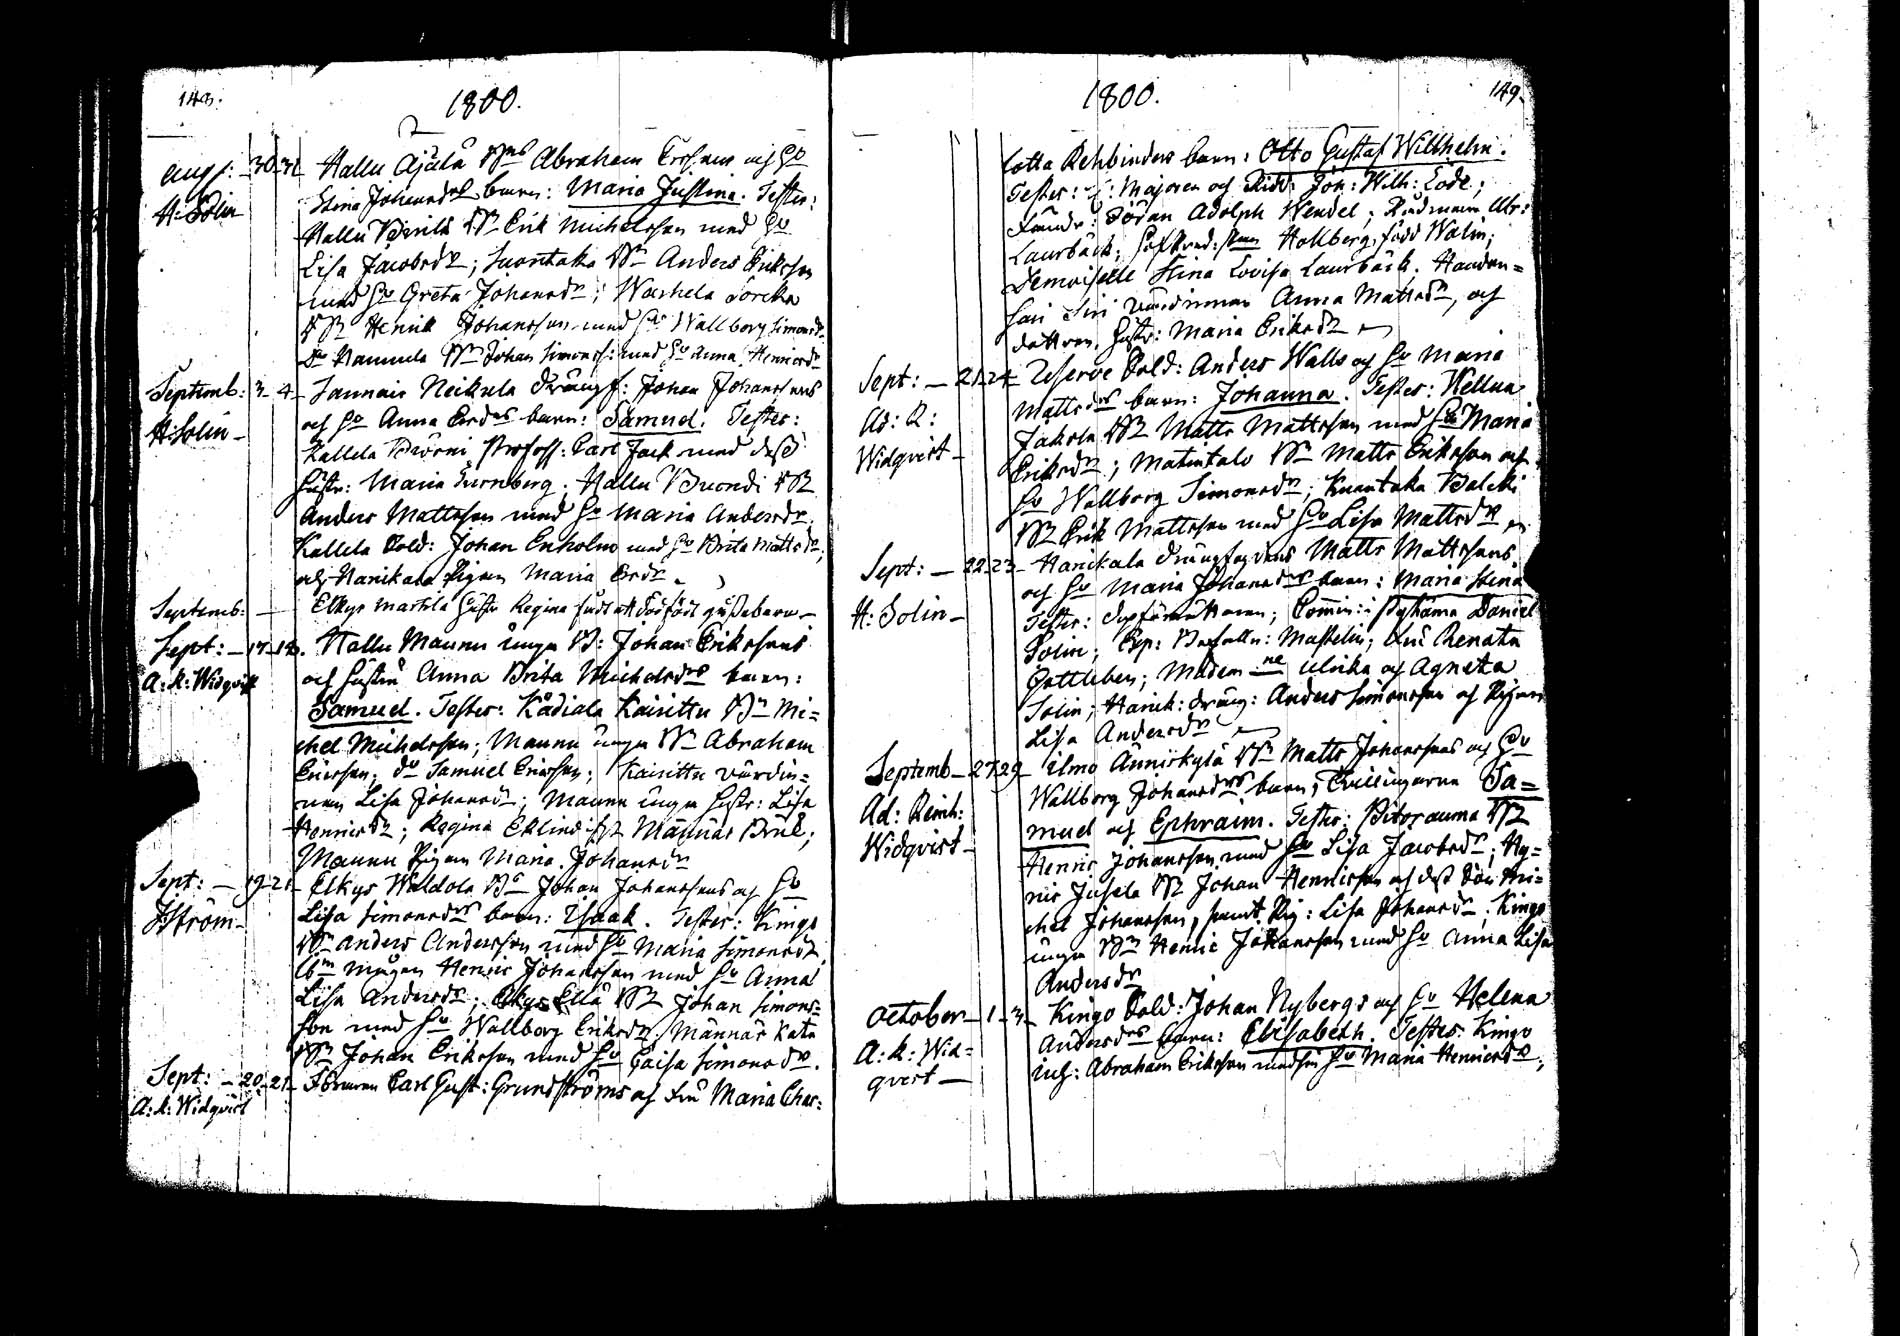 148.
1800.
Aug: 30 31 Hallu Ajälä Bns Abraham Ersons och Hu
H: Solin Stina Johansdrs barn: Maria Justina. Testes:
Hallu Bn Erik Michelsson med Hu
Lisa Jacobsdr; Suontaka Bn Anders Eriksson
med Hu Greta Johansdr; Warhela
Bn Henrik Johansson med Hu Wallborg Simonsdr
Do Nammela Bn Johan Simonss: med Hu Anna Henricsdr
Septemb: 3 4 Sannais Neikula drängf: Johan Johanssons
och Hu Anna Ersdrs barn: Samuel. Testes:
H: Solin Kallela Carl med dess
Hustr: Maria; Hallu Bn
Anders Mattsson med Hu Maria Andersdr.
Kallela Sold: Johan Enholm med Hu Brita Mattsdr;
och Hanikala Pigan Maria Ersdr
Septemb: Elkys Hustr Regina födt ett dödfödt gossebarn
Sept: 17 18. Hallu Maunu unga B: Johan Erikssons
A: R: Widqvist och Hustru Anna Brita Michelsdrs barn:
Samuel. Testes: Kådiala Kaisittu Bn Mi=
chel Michelsson; Maunu unga Bn Abraham
Ericsson; do Samuel Ericsson; Kaisittu värdin=
nan Lisa Johansdr; Maunu unga Hustr: Lisa
Henricsdr; Regina Eklind Männäis
Maunu Pigan Maria Johansdr
Sept: 19 21 Elkys Waldola Bn Johan Johanssons och Hu
Ström Lisa Simonsdrs barn: Isaak. Testes: Kings
Bn Anders Andersson med Hu Maria Simonsdr,
mågen Henric Johansson med Hu Anna
Lisa Andersdr; Elkys Ella Bn Johan Simons=
son med Hu Wallborg Eriksdr; Männäis Kata
Bn Johan Eriksson med Hu Caisa Simonsdr.
Sept: 20 21 Carl Gust: Grundströms och Fru Maria Char:
A: R: Widqvist
1800.
149.
lotta Rehbinders barn: Otto Gustaf Willhelm.
Testes: Majoren och Ridd: Joh: Wilh: Lode;
Adolph Wendel; Rådman
Laurbäck; Hollberg, född Walm;
Demoiselle Stina Lovisa Laurbäck. Haudan=
värdinnan Anna Mattsdr, och
dottren, Hustr: Maria Eriksdr
Sept: 21 24 Reserve Sold: Anders Walls och Hu Maria
Ad: R: Mattsdrs barn: Johanna. Testes: Wellua
Jakola Bn Matts Mattsson med Hu Maria
Widqvist Eriksdr; Matintalo Bn Matts Eriksson och
Hu Wallborg Simonsdr; Suontaka
Bn Erik Mattsson med Hu Lisa Mattsdr
Sept: 22 23 Hanikala Matts Mattssons
och Hu Maria Johansdrs barn: Maria Stina
H: Solin Testes: Commin: i Pyhäma Daniel
Solin; Exp: Befalln: Masselin; Fru Renata
Gottleben; Madem-ne Ulrika och Agneta
Solin, Hanik: dräng: Anders Simonsson och Pigan
Lisa Andersdr
Septemb 27 29 Ilmo Människylä Bn Matts Johanssons och Hu
Ad: Reinh: Wallborg Johansdrs barn, Tvillingarna Sa=
Widqvist muel och Ephraim. Testes: Pitorauma Bn
Henric Johansson med Hu Lisa Jacobsdr; Hy=
nis Jusela Bn Johan Henricsson och dess Son Mi=
chel Johansson, samt Pig: Lisa Johansdr; Kings
unga Bn Henric Johansson med Hu Anna Lisa
Andersdr
October 1 3 Kings Sold: Johan Nybergs och Hu Helena
A: R: Wid= Andersdrs barn: Elisabeth. Testes: Kings
qvist Inh: Abraham Eriksson med sin Hu Maria Henricsdr;